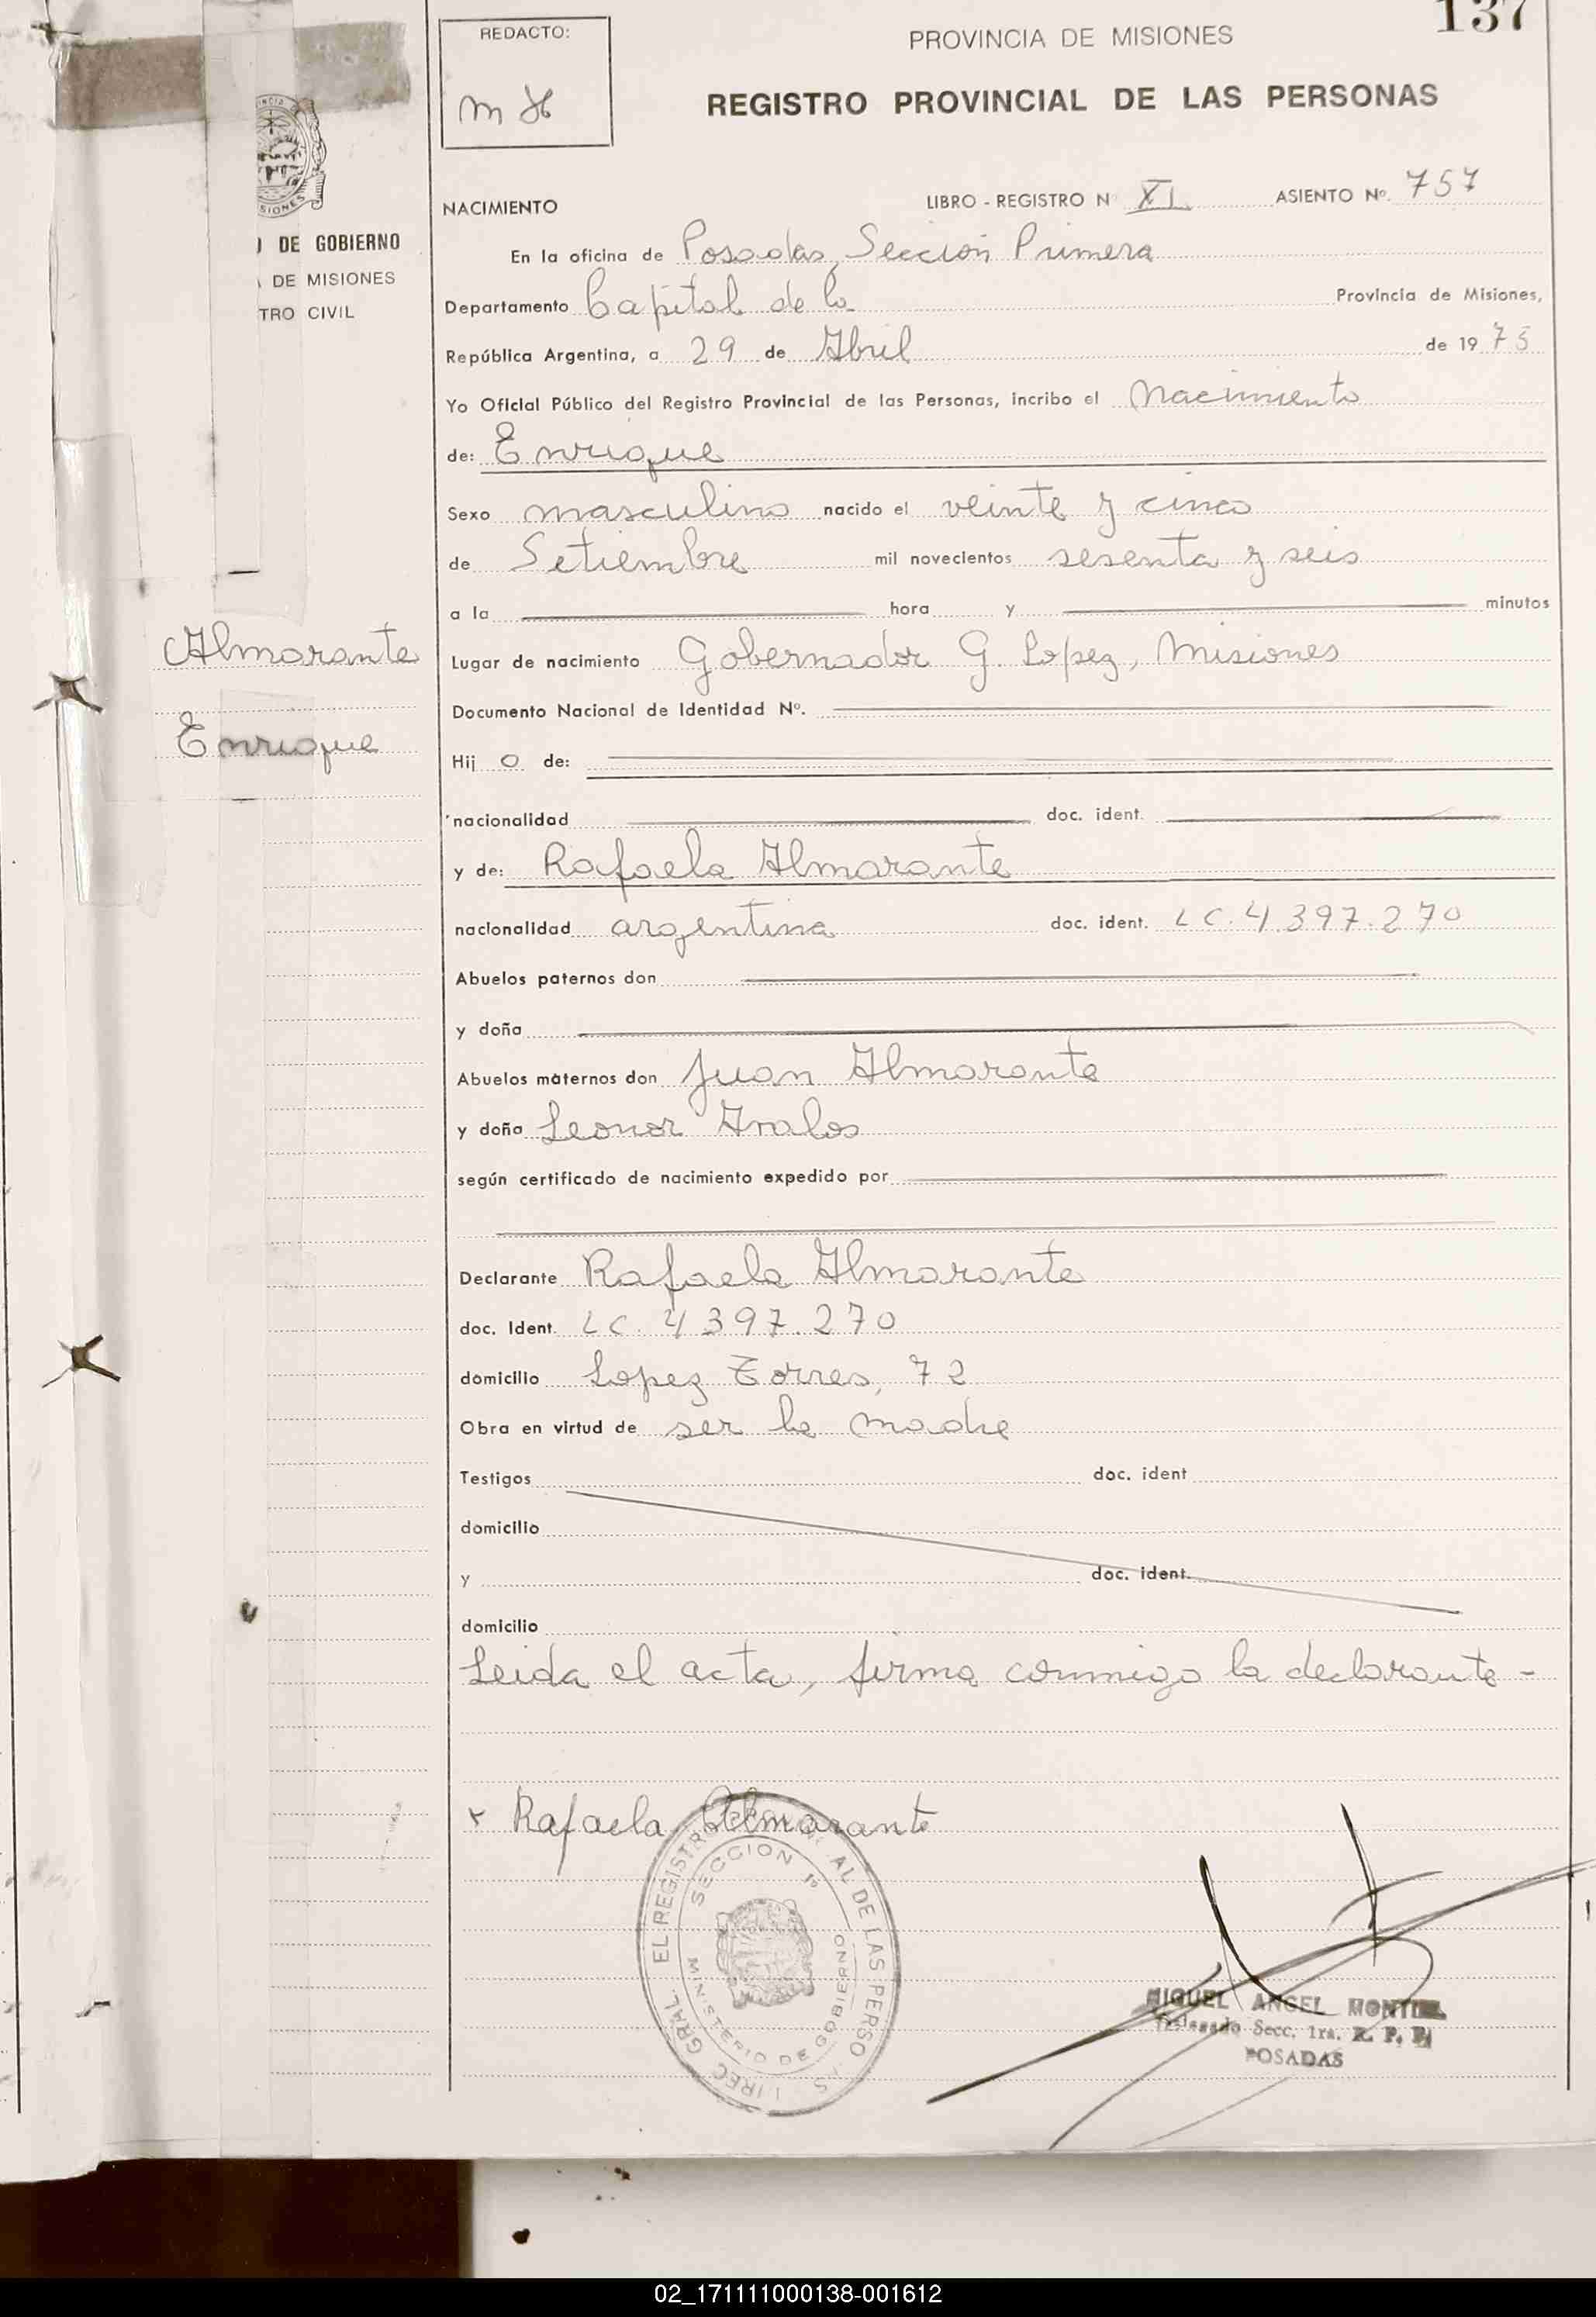 137
REDACTO:
PROVINCIA DE MISIONES
REGISTRO PROVINCIAL DE LAS PERSONAS
DE GOBIERNO
DE MISIONES
TRO CIVIL
NACIMIENTO LIBRO - REGISTRO N XI ASIENTO Nº. 757
En la oficina de Posadas, Sección Primera
Departamento Capital de la Provincia de Misiones,
República Argentina, a 29 de Abril de 1975
Yo Oficial Público del Registro Provincial de las Personas, incribo el Nacimiento
de: Enrique
Sexo masculino nacido el veinte y cinco
de Setiembre mil novecientos sesenta y seis
a la hora y minutos
Almarante
Lugar de nacimiento Gobernador G. Lopez, Misiones
Documento Nacional de Identidad Nº.
Enrique
Hij o de:
nacionalidad doc. ident.
y de: Rafaela Almarante
nacionalidad argentina doc. ident. LC. 4.397.270
Abuelos paternos don
y doña
Abuelos maternos don Juan Almarante
y doña Leonor Avalos
según certificado de nacimiento expedido por
Declarante Rafaela Almarante
doc. Ident. LC. 4397.270
domicilio Lopez Torres, 72
Obra en virtud de ser la madre
Testigos doc. ident
domicilio
y doc. ident.
domicilio
Leida el acta, firma conmigo la declarante -
x Rafaela Almarante
SECCION 1º
MINISTERIO DE GOBIERNO
MIGUEL ANGEL
Delegado Secc. 1ra. R. P. P.
POSADAS
02_171111000138-001612